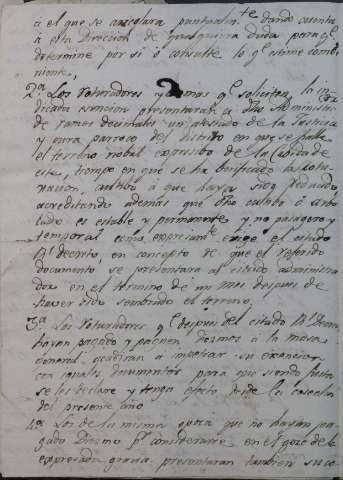 à el que se arreglara puntualm.te dando cuenta
a esta Direccion de qualquiera duda para q.e
determine por si ó consulte lo q.e estime combe-
niente,
2.a Los Roturadores y demas q.e soliciten la in-
dicada esencion presentaran a dho Administra-
dor de ramos decimales un atestado de la Justicia
y cura parroco del distrito en que se halle
el terreno nobal expresibo de la Cabida de
este, tiempo en que se ha berificado la rotu-
racion, cultibo á que haya sido reducido,
acreditando ademas que dho cultibo ó arbo-
lado es estable y permanente y no pasagero y
temporal como expresam.te exige el citado
R.l decreto, en concepto de que el referido
documento se presentara al citado administra-
dor en el termino de un mes despues de
haver sido sembrado el terreno,
3.a Los Roturadores q.e despues del citado R.l Decreto
hayan pagado y paguen Diezmos à la masa
general acudiran a impetrar su exencion
con iguales documentos para que siendo justa
se les declare y tenga efecto desde la cosecha
del presente año
4.a Los de la misma epoca que no hayan pa-
gado Diezmo p.r considerarse en el goze de la
expresada gracia presentaran tambien su co-